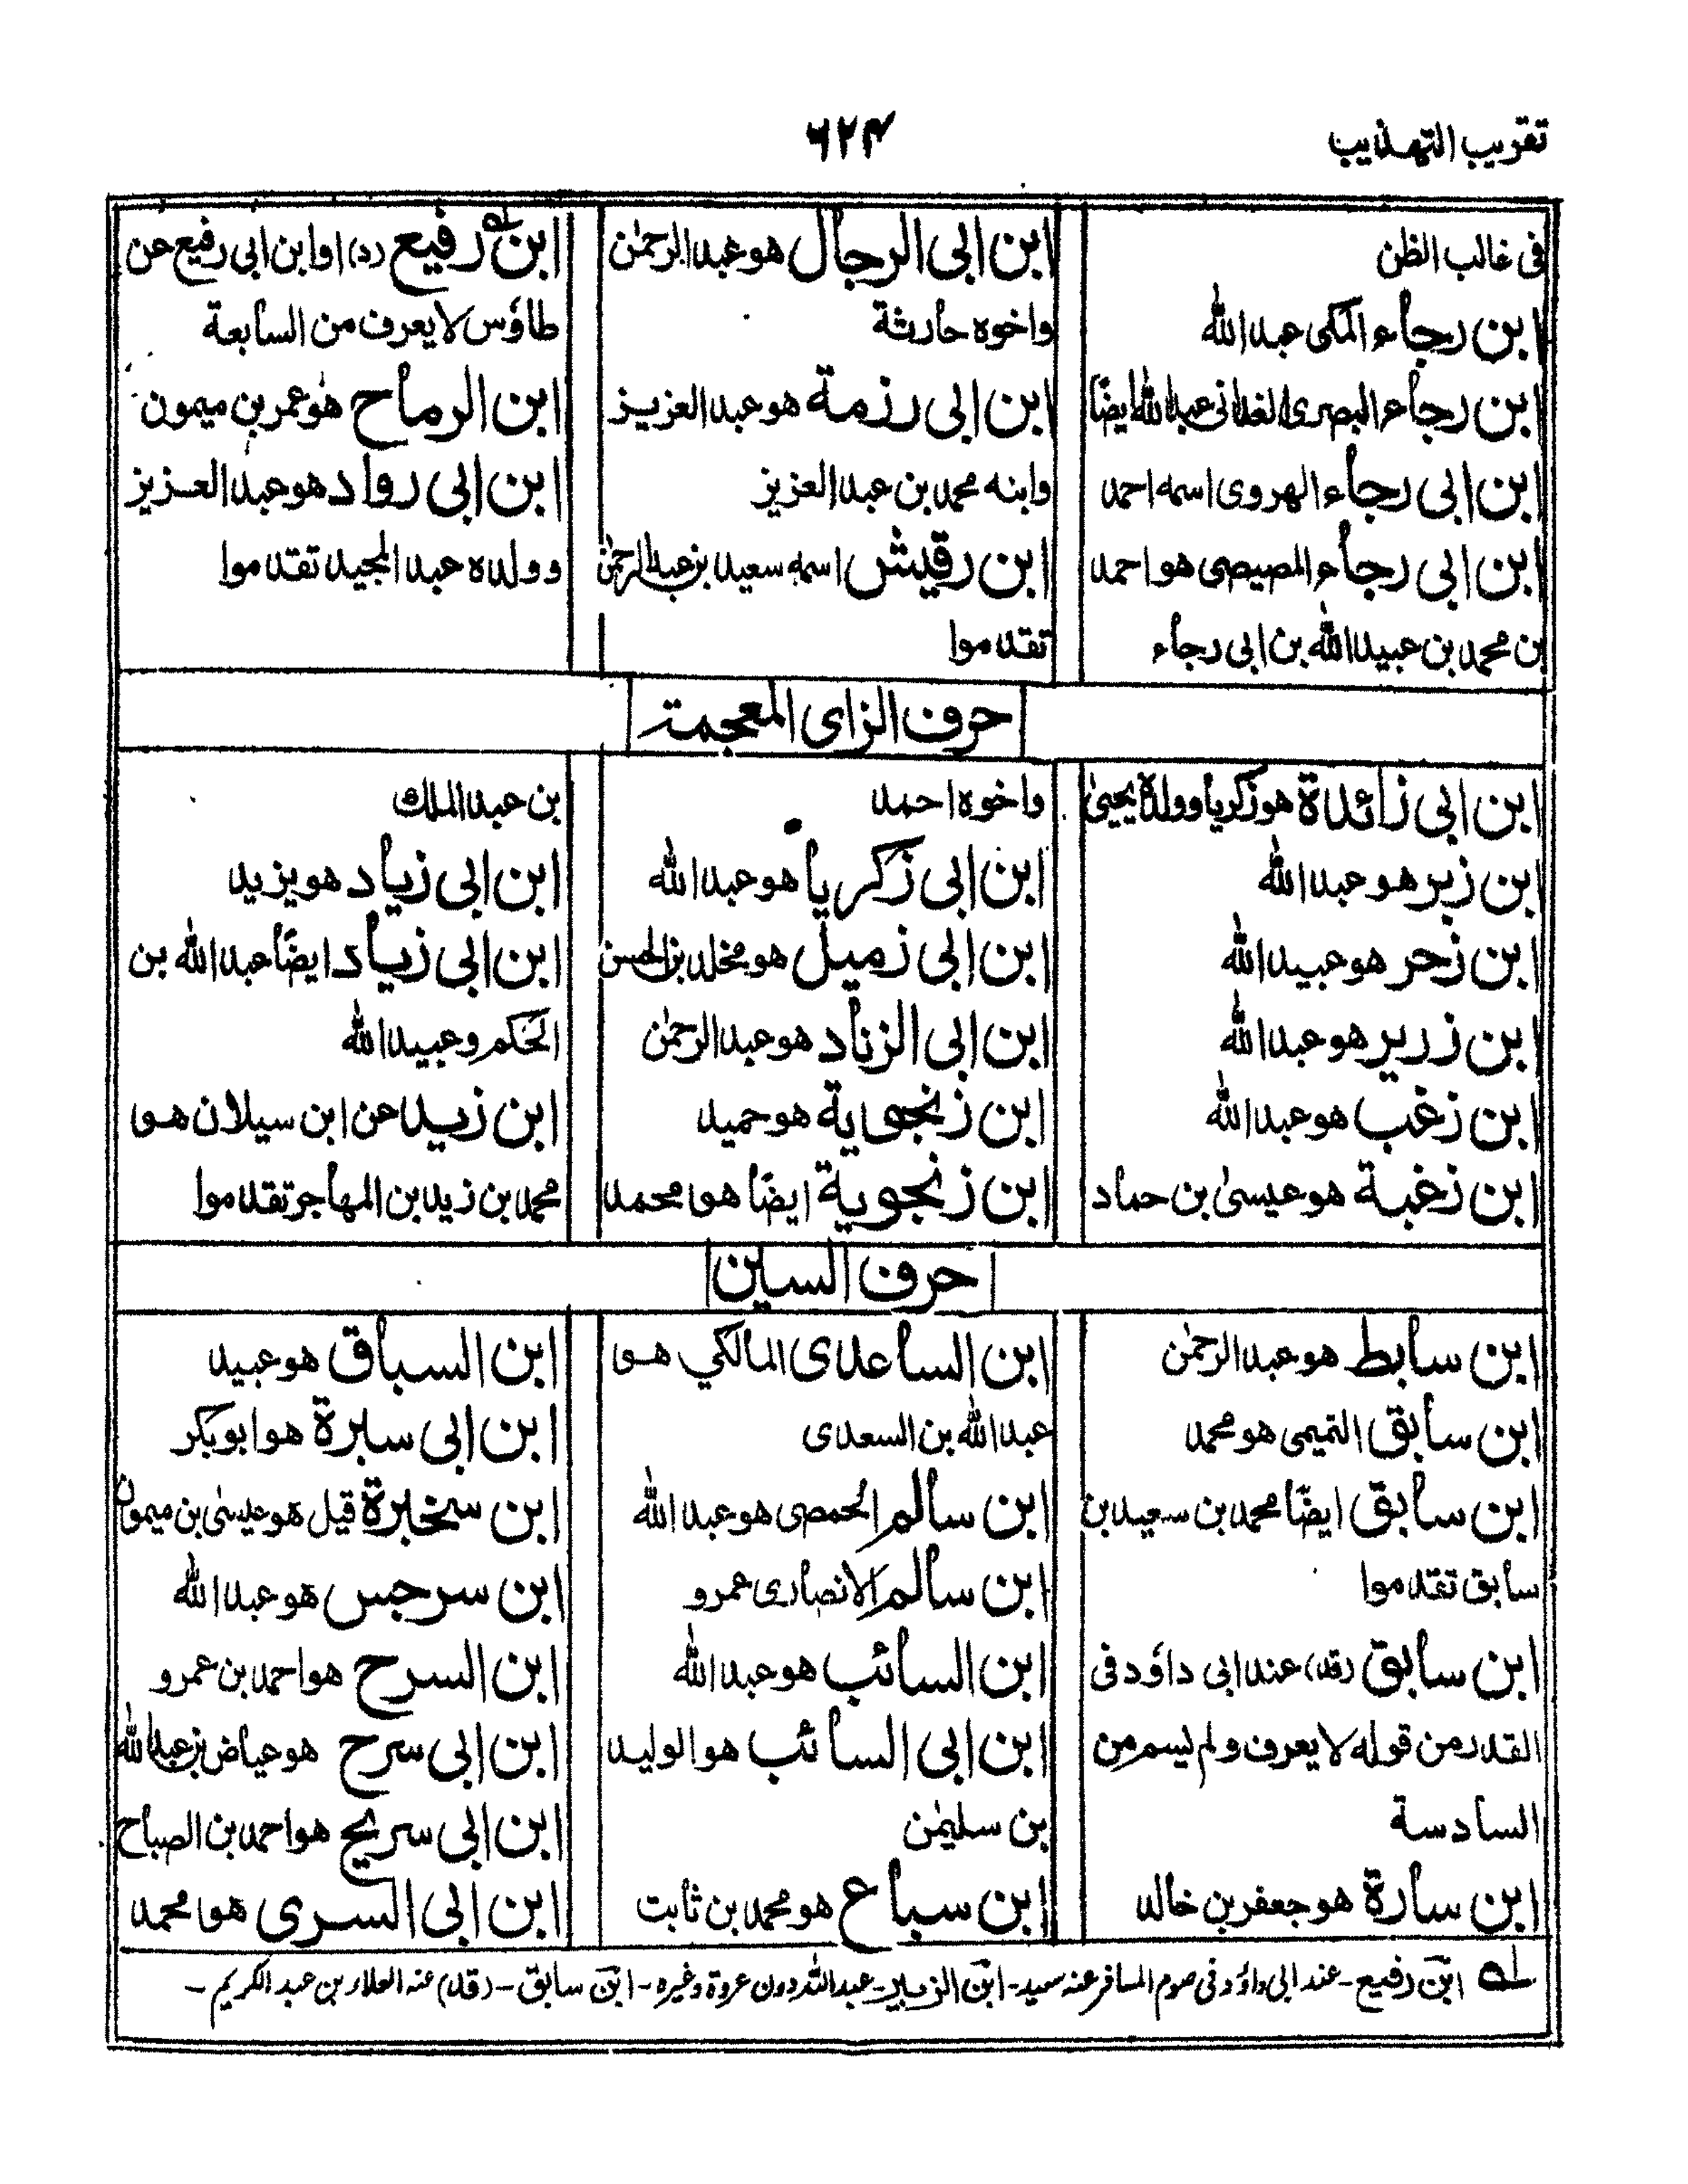 تقريب التهذيب
٦٢٤
فى غالب الظن
ابن رجاء المكى عبد الله
ابن رجاء البصرى الغدانى عبد الله ايضًا
ابن ابى رجاء الهروى اسمه احمد
ابن ابى رجاء المصيصى هو احمد
بن محمد بن عبيد الله بن ابى رجاء
ابن ابى الرجال هو عبد الرحمٰن
واخوه حارثة
ابن ابى رزمة هو عبد العزيز
وابنه محمد بن عبد العزيز
ابن رقيش اسمه سعيد بن عبد الرحمٰن
تقدموا
ابن رفيع (د) او ابن ابى رفيع عن
طاؤس لا يعرف من السابعة
ابن الرماح هو عمر بن ميمون
ابن ابى رواد هو عبد العزيز
وولده عبد المجيد تقدموا
حرف الزاى المعجمة
ابن ابى زائدة هو زكريا وولده يحيىٰ
ابن زبر هو عبد الله
ابن زحر هو عبيد الله
ابن زرير هو عبد الله
ابن زغب هو عبد الله
ابن زغبة هو عيسىٰ بن حماد
واخوه احمد
ابن ابى زكريا هو عبد الله
ابن ابى زميل هو مخلد بن الحسن
ابن ابى الزناد هو عبد الرحمٰن
ابن زنجوية هو حميد
ابن زنجوية ايضًا هو محمد
بن عبد الملك
ابن ابى زياد هو يزيد
ابن ابى زياد ايضًا عبد الله بن
الحكم وعبيد الله
ابن زيد عن ابن سيلان هو
محمد بن زيد بن المهاجر تقدموا
حرف السين
ابن سابط هو عبد الرحمٰن
ابن سابق التميمى هو محمد
ابن سابق ايضًا محمد بن سعيد بن
سابق تقدموا
ابن سابق (قد) عند ابى داؤد فى
القدر من قوله لا يعرف ولم يسم من
السادسة
ابن سارة هو جعفر بن خالد
ابن الساعدى المالكي هو
عبد الله بن السعدى
ابن سالم الحمصى هو عبد الله
ابن سالم الانصارى عمرو
ابن السائب هو عبد الله
ابن ابى السائب هو الوليد
بن سليمٰن
ابن سباع هو محمد بن ثابت
ابن السباق هو عبيد
ابن ابى سبرة هو ابو بكر
ابن سخبرة قيل هو عيسىٰ بن ميمون
ابن سرجس هو عبد الله
ابن السرح هو احمد بن عمرو
ابن ابى سرح هو عياض بن عبد الله
ابن ابى سريج هو احمد بن الصباح
ابن ابى السرى هو محمد
له ابن رفيع - عند ابى داؤد فى صوم المسافر عنه سعيد - ابن الزبير - عبد الله دون عروة وغيره - ابن سابق - (قد) عنه العلاء بن عبد الكريم -